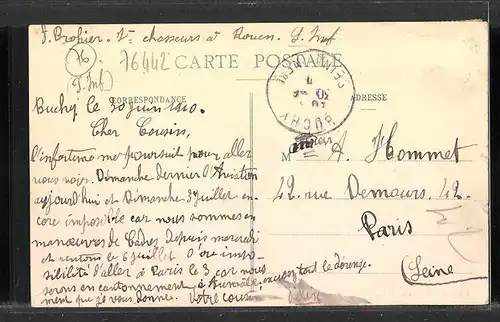 J. Propier. 7e chasseurs à Rouen. S. Inf
76
76442
(S. Inf)
CARTE POSTALE
CORRESPONDANCE
ADRESSE
BUCHY
SEINE
Buchy le 30 juin 1910.
Cher Cousin,
l'infortune me poursuit pour aller
vous voir. Dimanche dernier l'Aviation
aujourd'hui et Dimanche 3 juillet en-
core impossible car nous sommes en
manœuvres de Cadres depuis mercredi
et rentrons le 6 juillet. D'ore impos-
sibilité d'aller à Paris le 3 car nous
serons en cantonnement à Aumale, excusez tout le dérange-
ment que je vous donne. Votre cousin
M
A. Hommet
42 rue Demours. 42
Paris
(Seine)